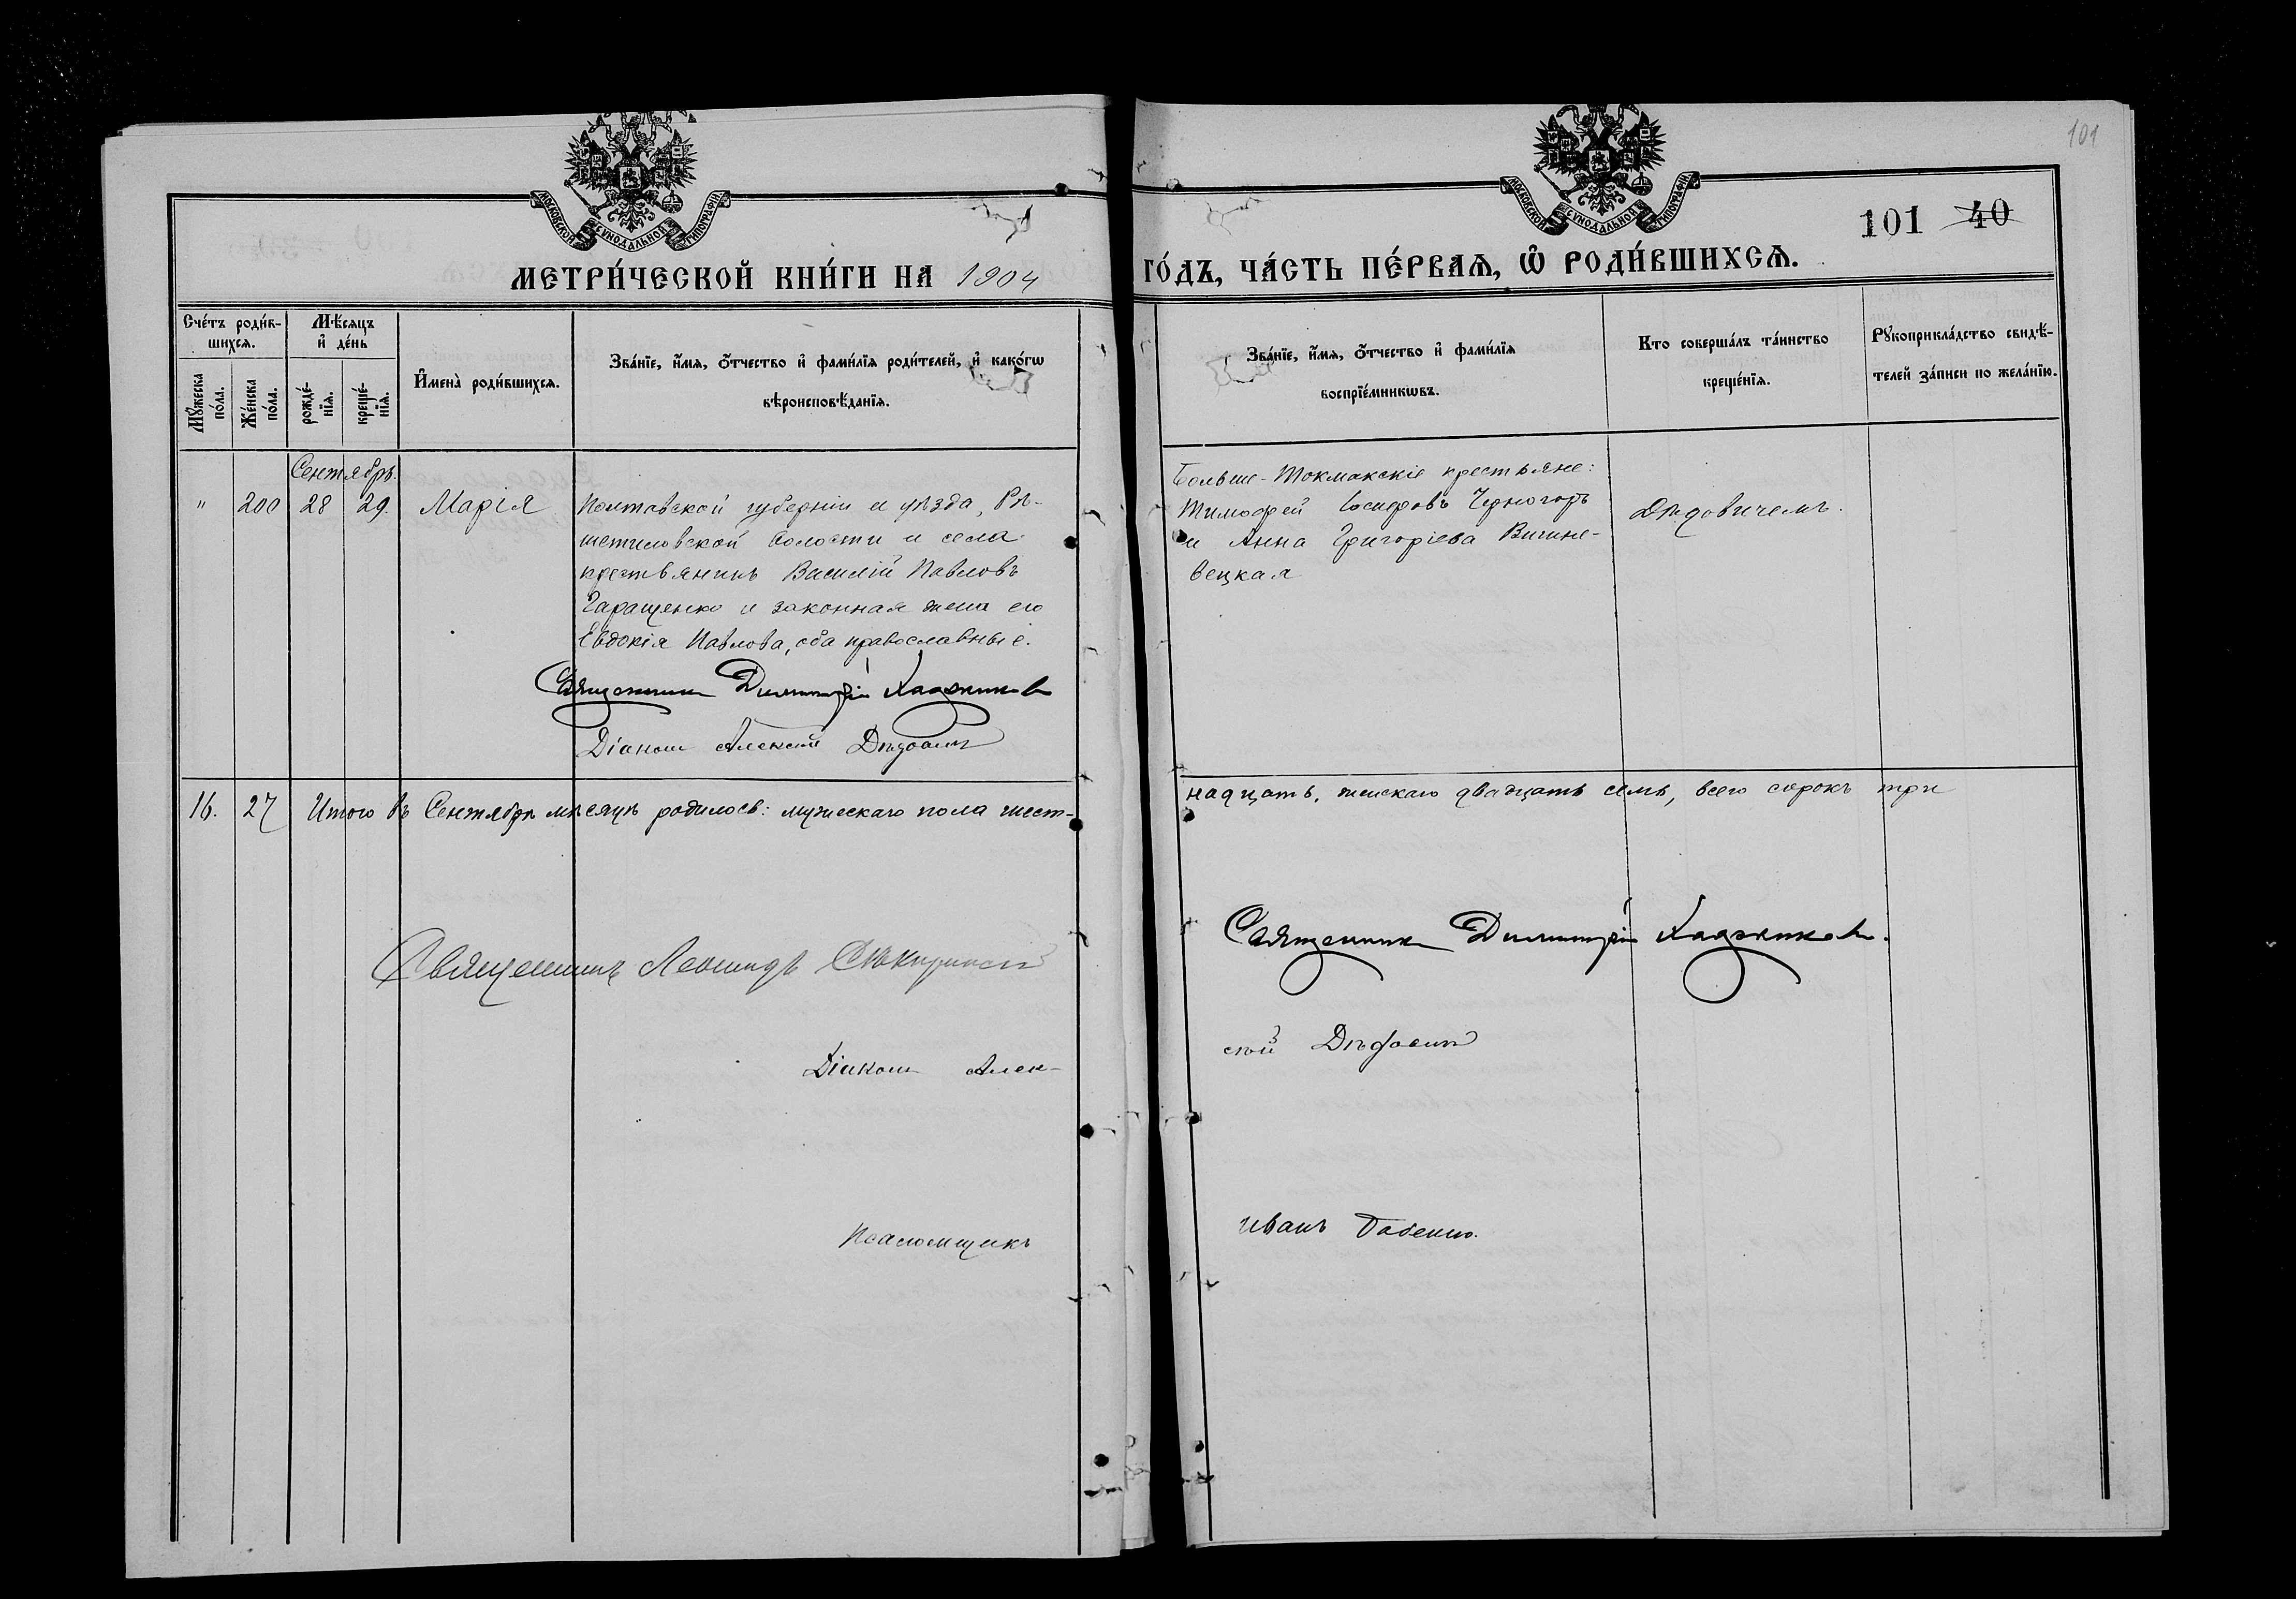 101
МОСКОВСКОЙ СѴНОДАЛЬНОЙ ТИПОГРАФІИ.
МОСКОВСКОЙ СѴНОДАЛЬНОЙ ТИПОГРАФІИ.
101 40
МЕТРИ́ЧЕСКОЙ КНИ́ГИ НА 1904
ГО́ДЪ, ЧА́СТЬ ПЕ́РВАѦ, Ѽ РОДИ́ВШИХСѦ.
Сче́тъ роди́в-
шихсѧ.
Мꙋ́жеска по́ла.
Же́нска по́ла.
Мѣ́сѧцъ
и҆ де́нь
рожде́-
нїѧ.
креще́-
нїѧ.
И҆мена̀ роди́вшихсѧ.
Зва́нїе, и҆́мѧ, ѻ҆́тчество и҆ фами́лїѧ роди́телей, и҆ како́гѡ
вѣроисповѣ́данїѧ.
Зва́нїе, и҆́мѧ, ѻ҆́тчество и҆ фами́лїѧ
воспрїе́мникѡвъ.
Кто соверша́лъ та́инство
креще́нїѧ.
Рꙋкоприкла́дство свидѣ́-
телей за́писи по жела́нїю.
Сентябрь.
" 200 28 29. Марія
Полтавской губерніи и уѣзда, Рѣ-
шетиловской волости и села
крестьянинъ Василій Павловъ
Гаращенко и законная жена его
Евдокія Павлова, оба православные.
Священникъ Димитрій Хаджиновъ
Діаконъ Алексій Дѣдовичъ
Больше-Токмакскіе крестьяне:
Тимофей Іосифовъ Черногоръ
и Анна Григоріева Вишне-
вецкая
Дѣдовичемъ.
16. 27 Итого въ Сентябрѣ мѣсяцѣ родилось: мужескаго пола шест-
надцать, женскаго двадцать семь, всего сорокъ три
Священникъ Леонидъ
Священникъ Димитрій Хаджиновъ.
Діаконъ Алек-
сѣй Дѣдовичъ
Псаломщикъ
Иванъ Бабенко.